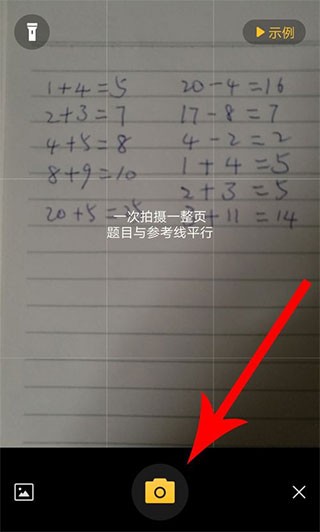 示例
1+4=5
2+3=7
4+5=8
8+9=10
20+5=25
20-4=16
17-8=7
4-2=2
1+4=5
2+3=5
+11=14
一次拍摄一整页
题目与参考线平行